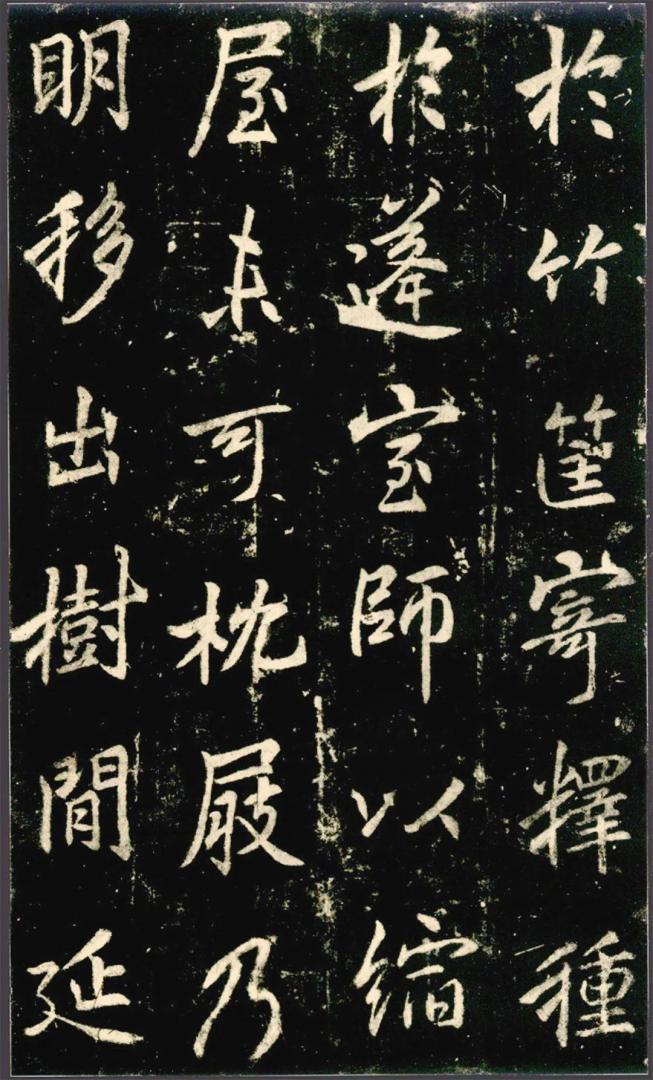 於竹筐寄釋種
於蓬室師以縮
屋未可枕乃
眀移出樹閒延